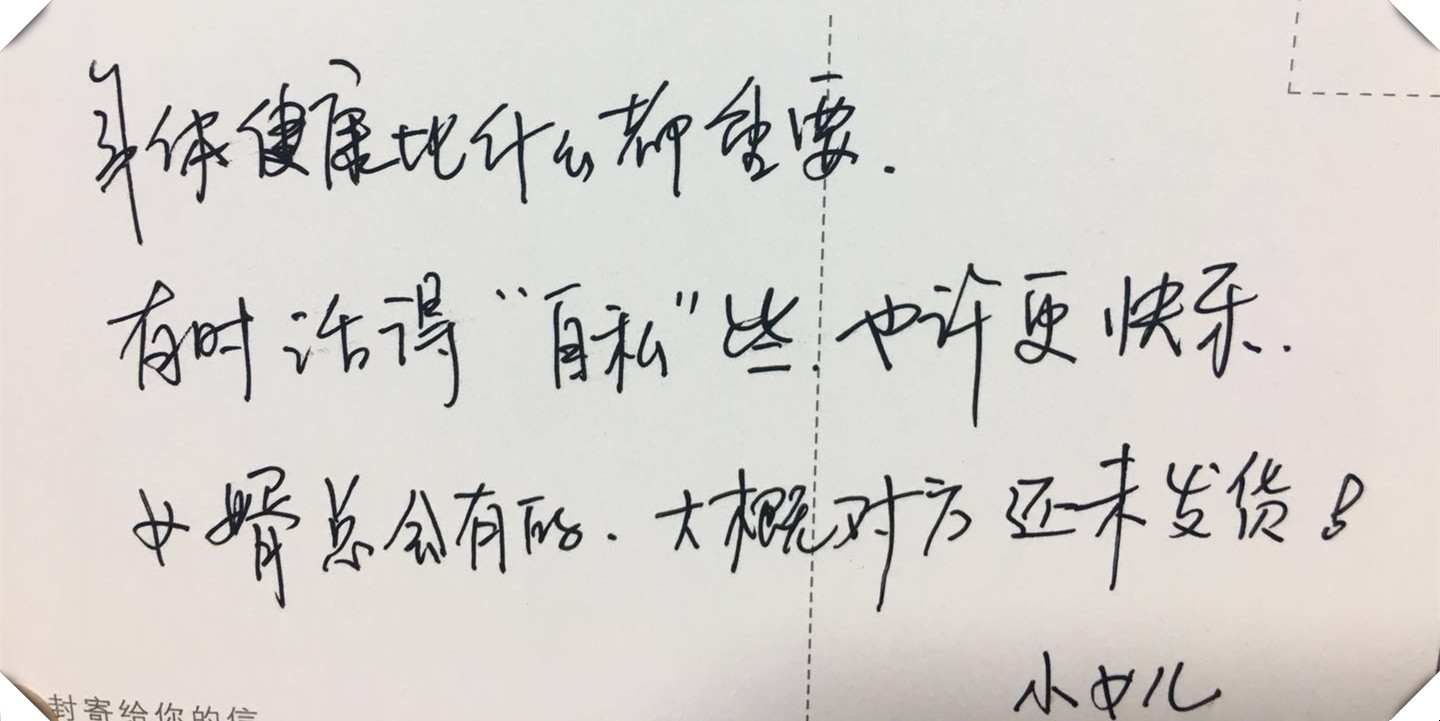 身体健康比什么都重要.
有时活得“自私”些.也许更快乐.
女婿总会有的.大概对方还未发货!
小女儿
封寄给你的信